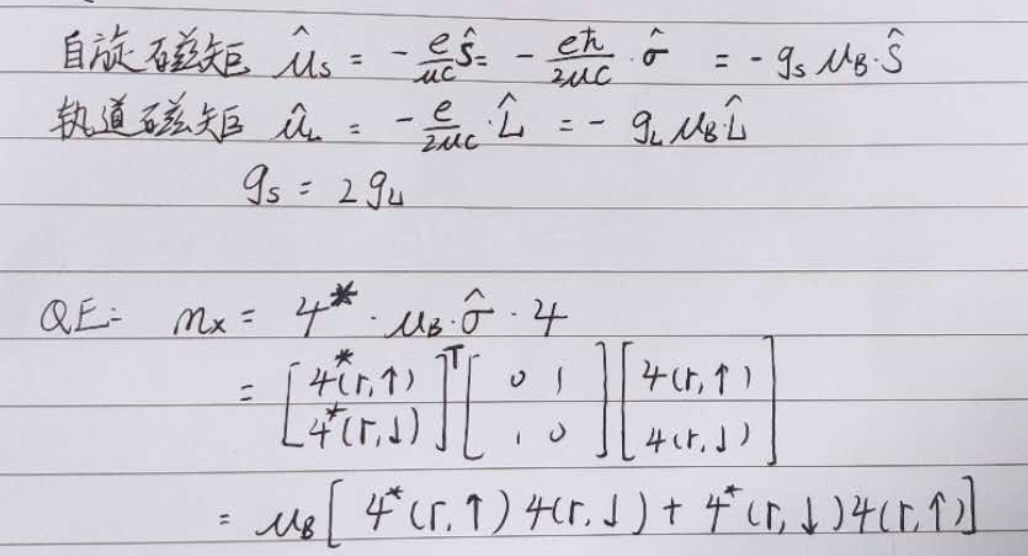 自旋磁矩 μ̂s = - e/μc Ŝ = - eħ/2μc · σ̂ = - gs μB·Ŝ
轨道磁矩 μ̂L = - e/2μc · L̂ = - gL μB L̂
gs = 2gL
QE: mx = ψ* · μB · σ̂ · ψ
= [ψ*(r,↑) ψ*(r,↓)]ᵀ [0 1 1 0] [ψ(r,↑) ψ(r,↓)]
= μB[ψ*(r,↑)ψ(r,↓) + ψ*(r,↓)ψ(r,↑)]